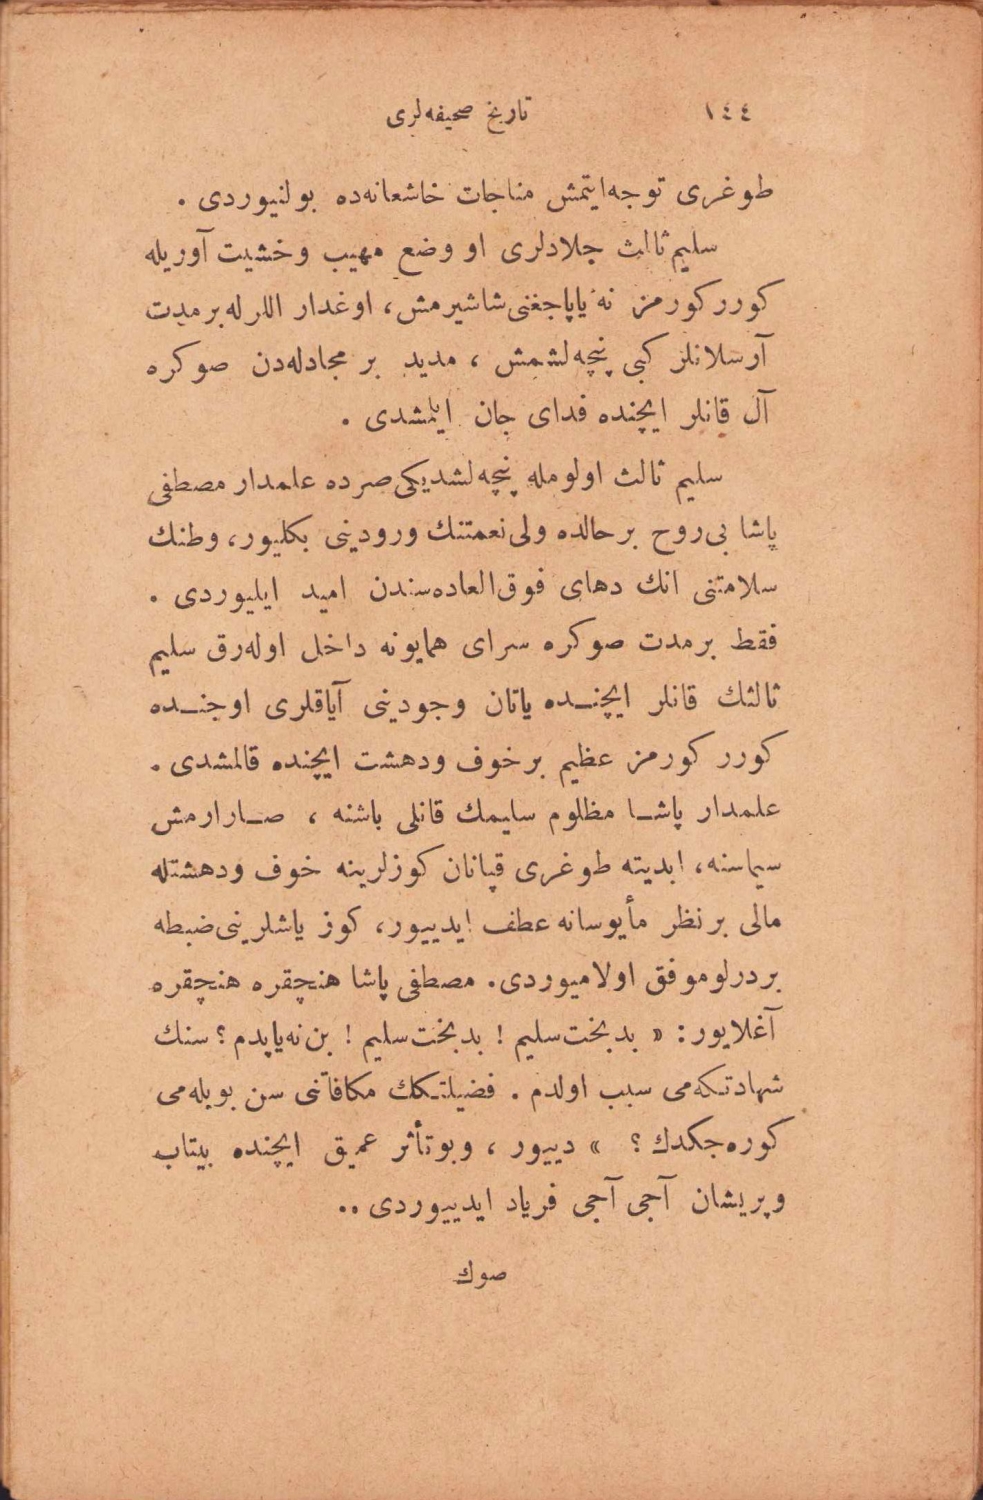 ١٤٤ تاریخ صحیفه‌لری
طوغری توجه‌ایتمش مناجات خاشعانه‌ده بولنیوردی .
سلیم ثالث جلادلری او وضع مهیب وخشیت آوریله
کورر کورمز نه یاپاجغنی شاشیرمش، اوغدار اللرله برمدت
آرسلانلر کبی پنچه‌لشمش ، مدید بر مجادله‌دن صوکره
آل قانلر ایچنده فدای جان ایلمشدی .
سلیم ثالث اولومله پنچه‌لشدیکی صرده علمدار مصطفی
پاشا بی‌روح برحالده ولی‌نعمتنك ورودینی بکلیور، وطنك
سلامتنی انك دهای فوق‌العاده‌سندن امید ایلیوردی .
فقط برمدت صوکره سرای همایونه داخل اوله‌رق سلیم
ثالثك قانلر ایچنـده یاتان وجودینی آیاقلری اوجنـده
کورر کورمز عظیم برخوف ودهشت ایچنده قالمشدی .
علمدار پاشـا مظلوم سلیمك قانلی باشنه ، صـارارمش
سیماسنه، ابدیته طوغری قپانان کوزلرینه خوف ودهشتله
مالی برنظر مأیوسانه عطف ایدییور، کوز یاشلرینی ضبطه
بردرلوموفق اولامیوردی. مصطفی پاشا هنچقره هنچقره
آغلایور: « بدبخت‌سلیم ! بدبخت‌سلیم ! بن نه‌یاپدم ؟ سنك
شهادتکه‌می سبب اولدم . فضیلتـکك مکافاتنی سن بویله‌می
کوره‌جکدك ؟ » دییور ، وبوتأثر عمیق ایچنده بیتاب
وپریشان آجی آجی فریاد ایدییوردی ..
صوك